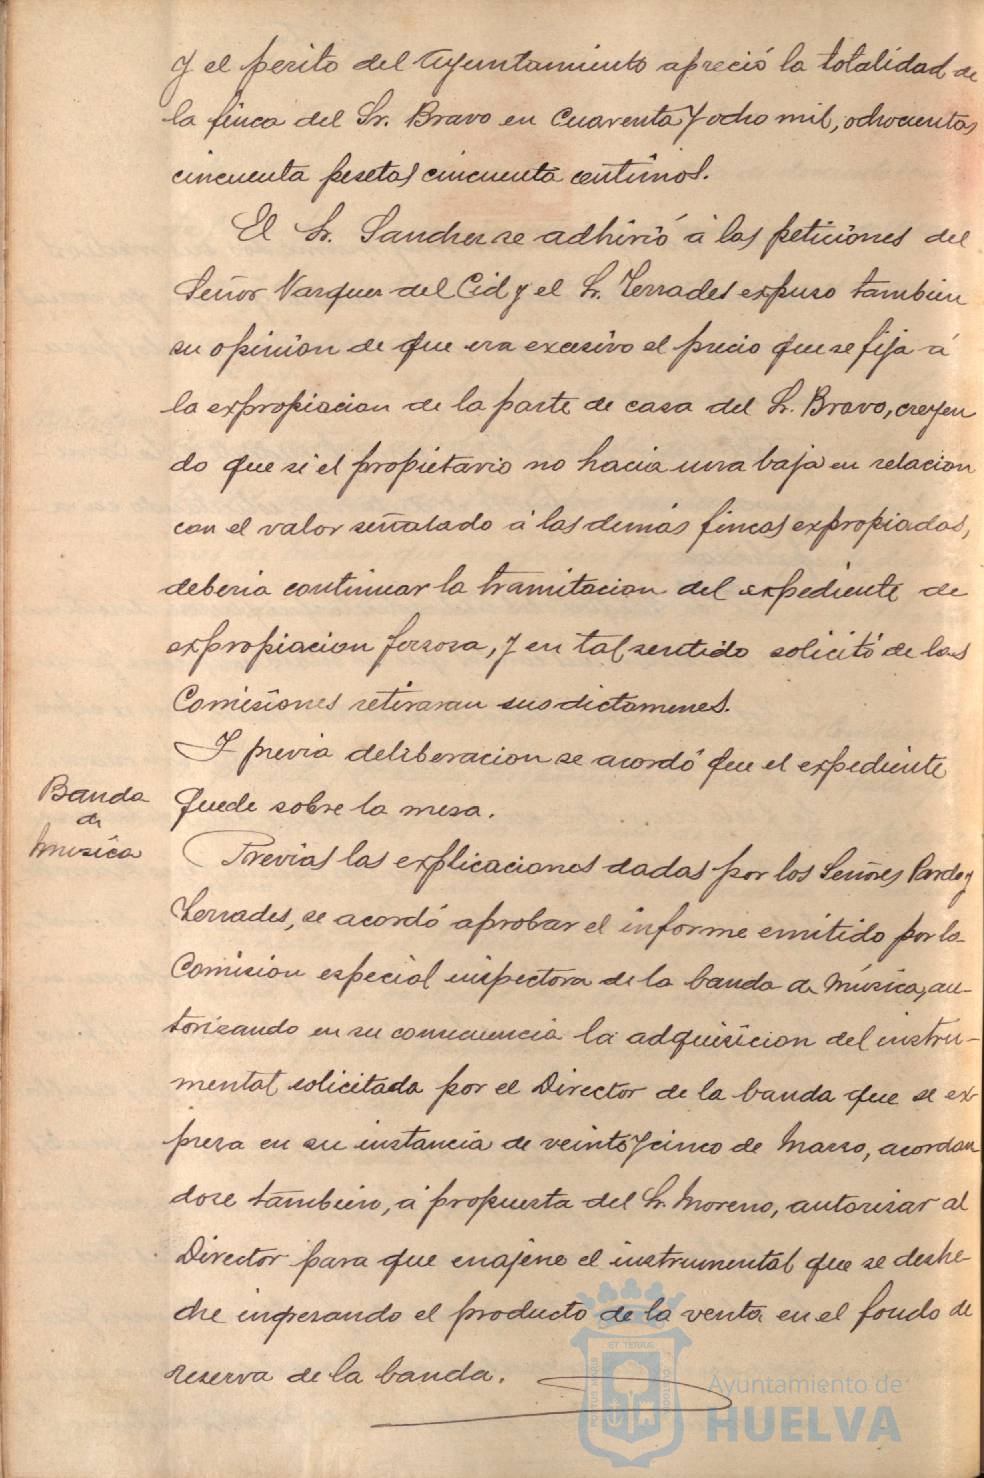 y el perito del Ayuntamiento apreció la totalidad de
la finca del Sr. Bravo en cuarenta y ocho mil, ochocientas
cincuenta pesetas cincuenta centimos.
El Sr. Sanchez se adhirió á las peticiones del
Señor Vazquez del Cid y el Sr. Terrades expuso tambien
su opinion de que era excesivo el precio que se fija á
la expropiacion de la parte de casa del Sr. Bravo, creyen
do que si el propietario no hacia una baja en relacion
con el valor señalado á las demás fincas expropiadas,
deberia continuar la tramitacion del expediente de
expropiacion forzosa, y en tal sentido solicitó de las
Comisiones retiraran sus dictamenes.
Y previa deliberacion se acordó que el expediente
quede sobre la mesa.
Banda
de
música
Previas las explicaciones dadas por los Señores Pardo y
Terrades, se acordó aprobar el informe emitido por la
Comision especial inspectora de la banda de Música, au-
torizando en su consecuencia la adquisicion del instru-
mental solicitada por el Director de la banda que se ex-
presa en su instancia de veinte y cinco de Marzo, acordan
dose tambien, á propuesta del Sr. Moreno, autorizar al
Director para que enajene el instrumental que se deshe-
che ingresando el producto de la venta en el fondo de
reserva de la banda.
Ayuntamiento de
HUELVA